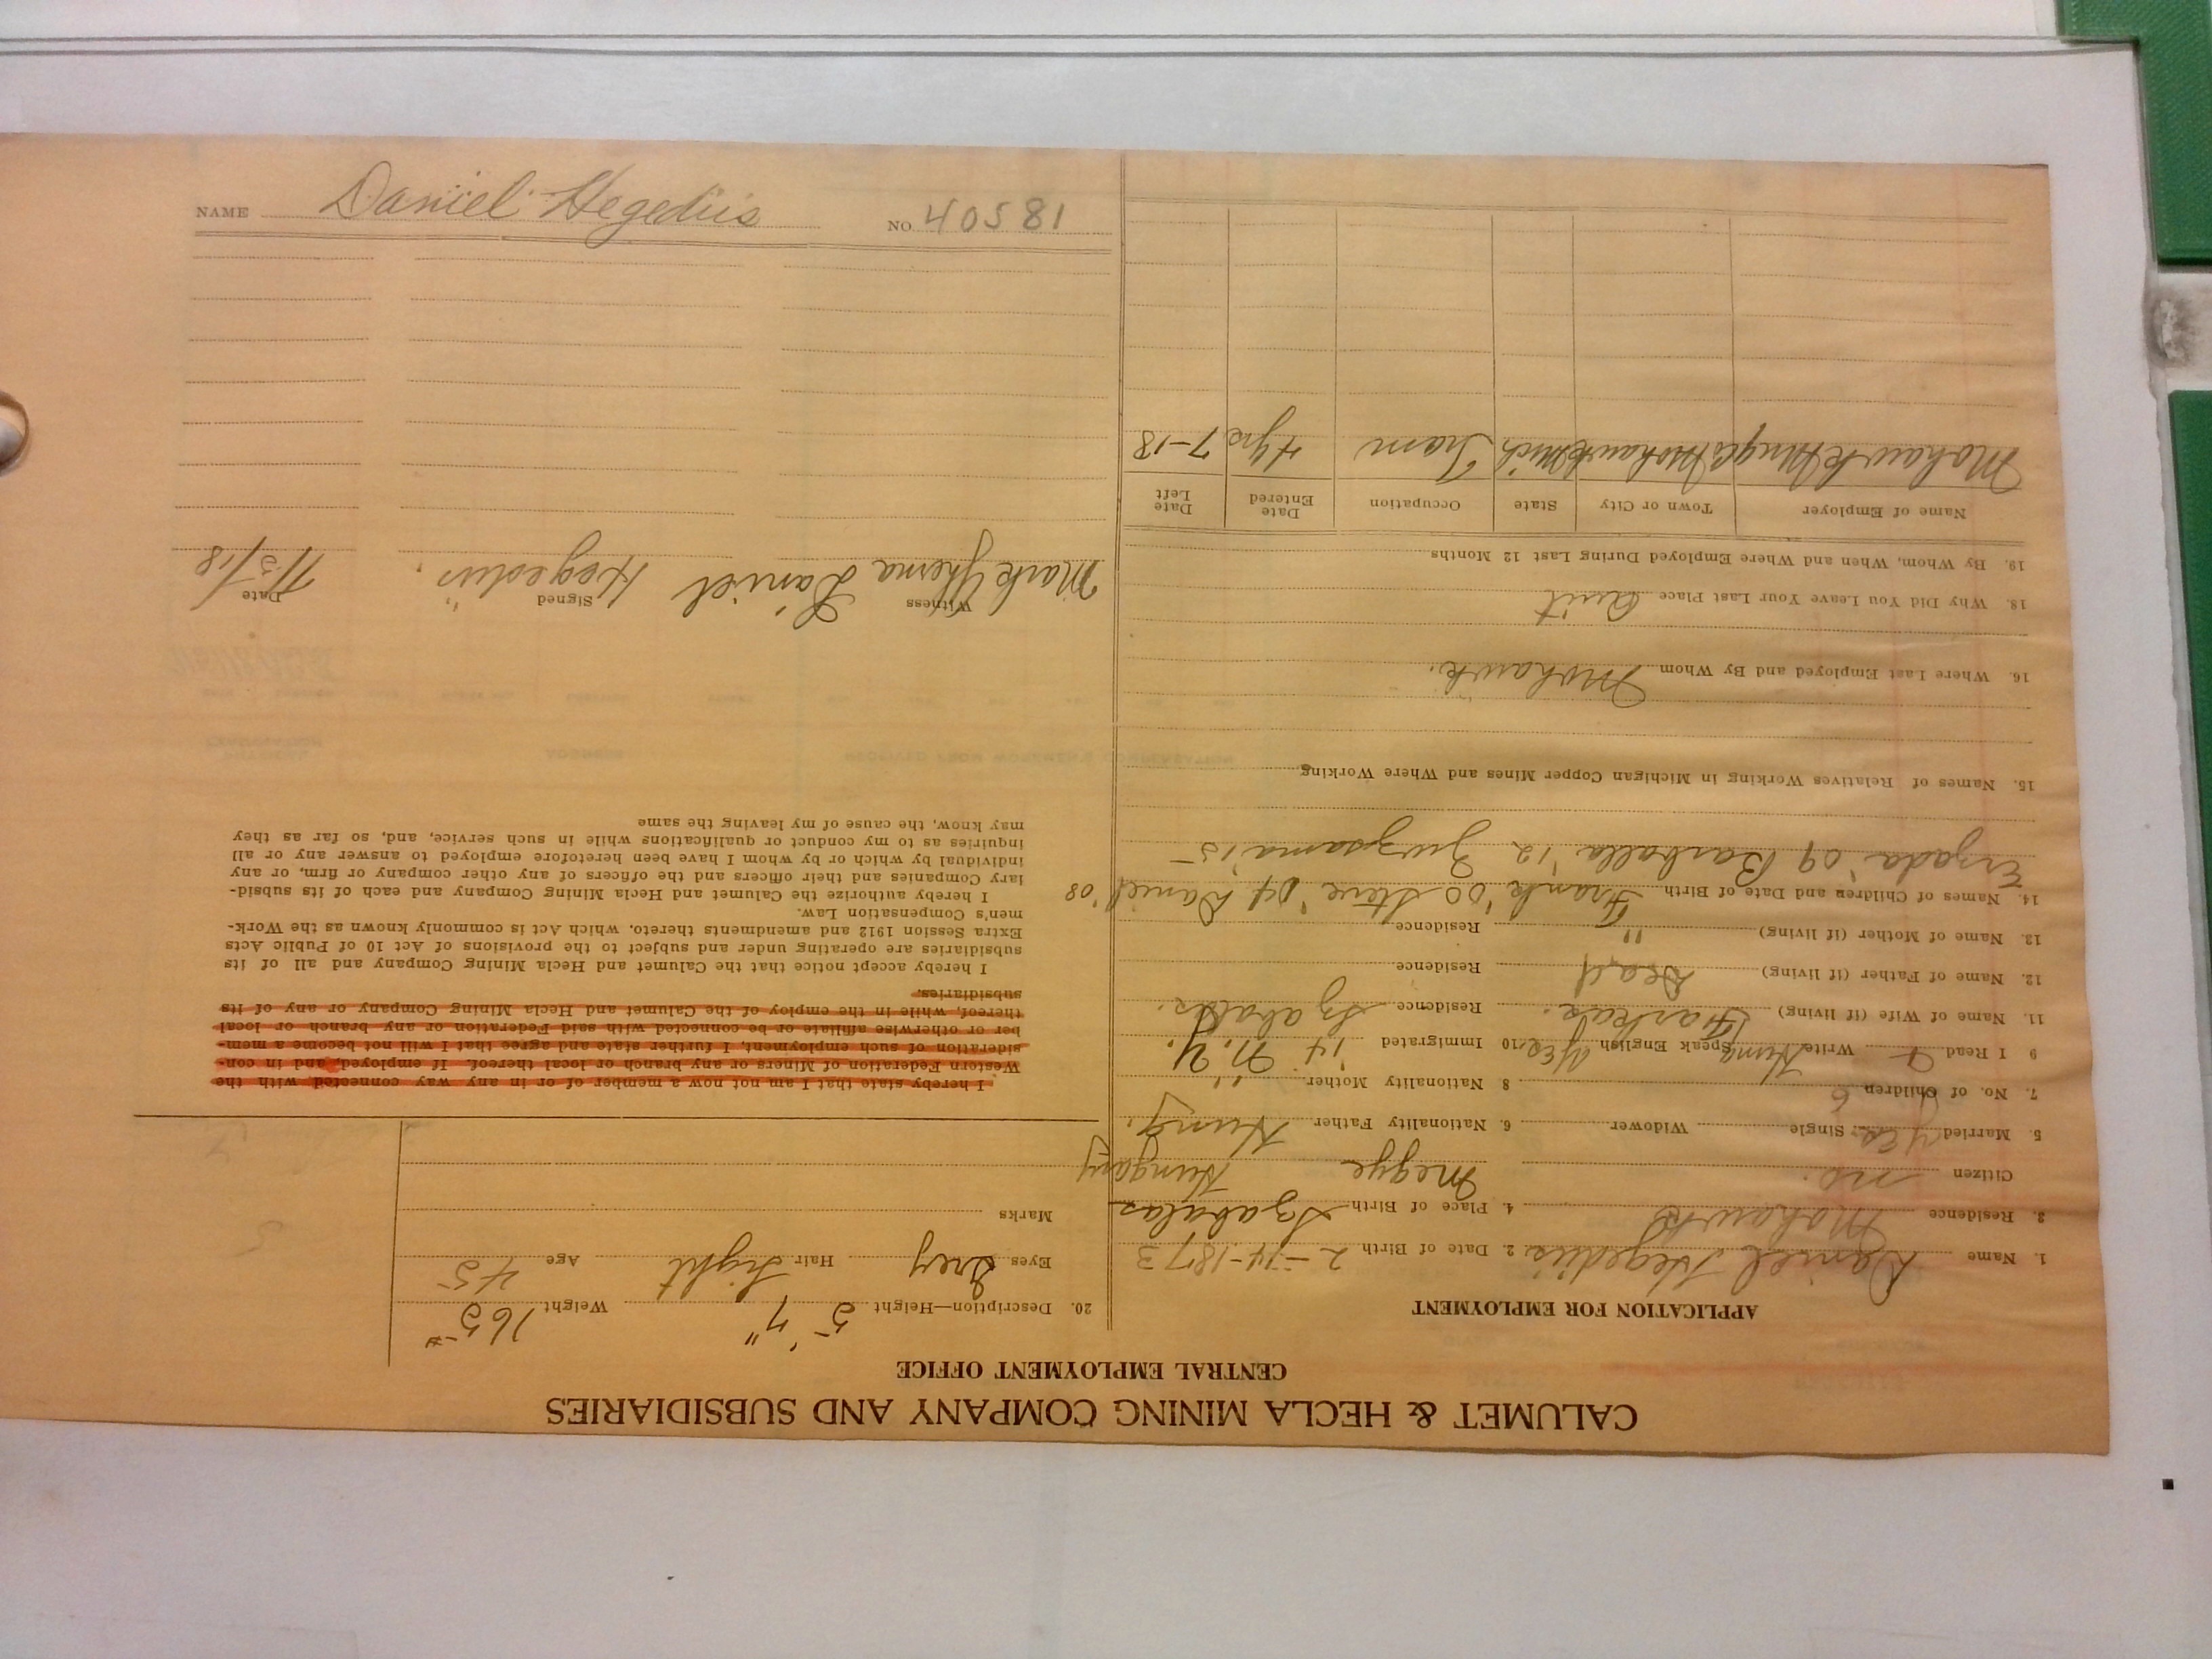 CALUMET & HECLA MINING COMPANY AND SUBSIDIARIES
CENTRAL EMPLOYMENT OFFICE
APPLICATION FOR EMPLOYMENT
1. Name Daniel Hegedüs 2. Date of Birth 2-14-1873
3. Residence Mohawk 4. Place of Birth Szabolas
Citizen no. Megye Hungary
5. Married yes. Single Widower 6. Nationality Father Hung.
7. No. of Children 6 8 Nationality Mother "
9 I Read & Write Hung Speak English yes 10 Immigrated '14 N.Y.
11. Name of Wife (if living) Farkas. Residence Szabolds.
12. Name of Father (if living) Dead Residence
13. Name of Mother (if living) " Residence
14. Names of Children and Date of Birth Frank '00 Steve '04 Daniel '08
Erzada '09 Barballa '12 '15-
15. Names of Relatives Working in Michigan Copper Mines and Where Working
16. Where Last Employed and By Whom Mohawk.
18. Why Did You Leave Your Last Place Quit
19. By Whom, When and Where Employed During Last 12 Months
Name of Employer Town or City State Occupation Date Entered Date Left
Mohawk Mng Co Mohawk Mich Tram 4 yrs 7-18
20. Description—Height 5' 7" Weight 165#
Eyes Grey Hair Light Age 45
Marks
I hereby state that I am not now a member of or in any way connected with the
Western Federation of Miners or any branch or local thereof. If employed, and in con-
sideration of such employment, I further state and agree that I will not become a mem-
ber or otherwise affiliate or be connected with said Federation or any branch or local
thereof, while in the employ of the Calumet and Hecla Mining Company or any of its
subsidiaries.
I hereby accept notice that the Calumet and Hecla Mining Company and all of its
subsidiaries are operating under and subject to the provisions of Act 10 of Public Acts
Extra Session 1912 and amendments thereto, which Act is commonly known as the Work-
men's Compensation Law.
I hereby authorize the Calumet and Hecla Mining Company and each of its subsid-
iary Companies and their officers and the officers of any other company or firm, or any
individual by which or by whom I have been heretofore employed to answer any or all
inquiries as to my conduct or qualifications while in such service, and, so far as they
may know, the cause of my leaving the same
Witness Signed Date
Daniel Hegedüs. 7/5/18
NAME Daniel Hegedüs NO 40581